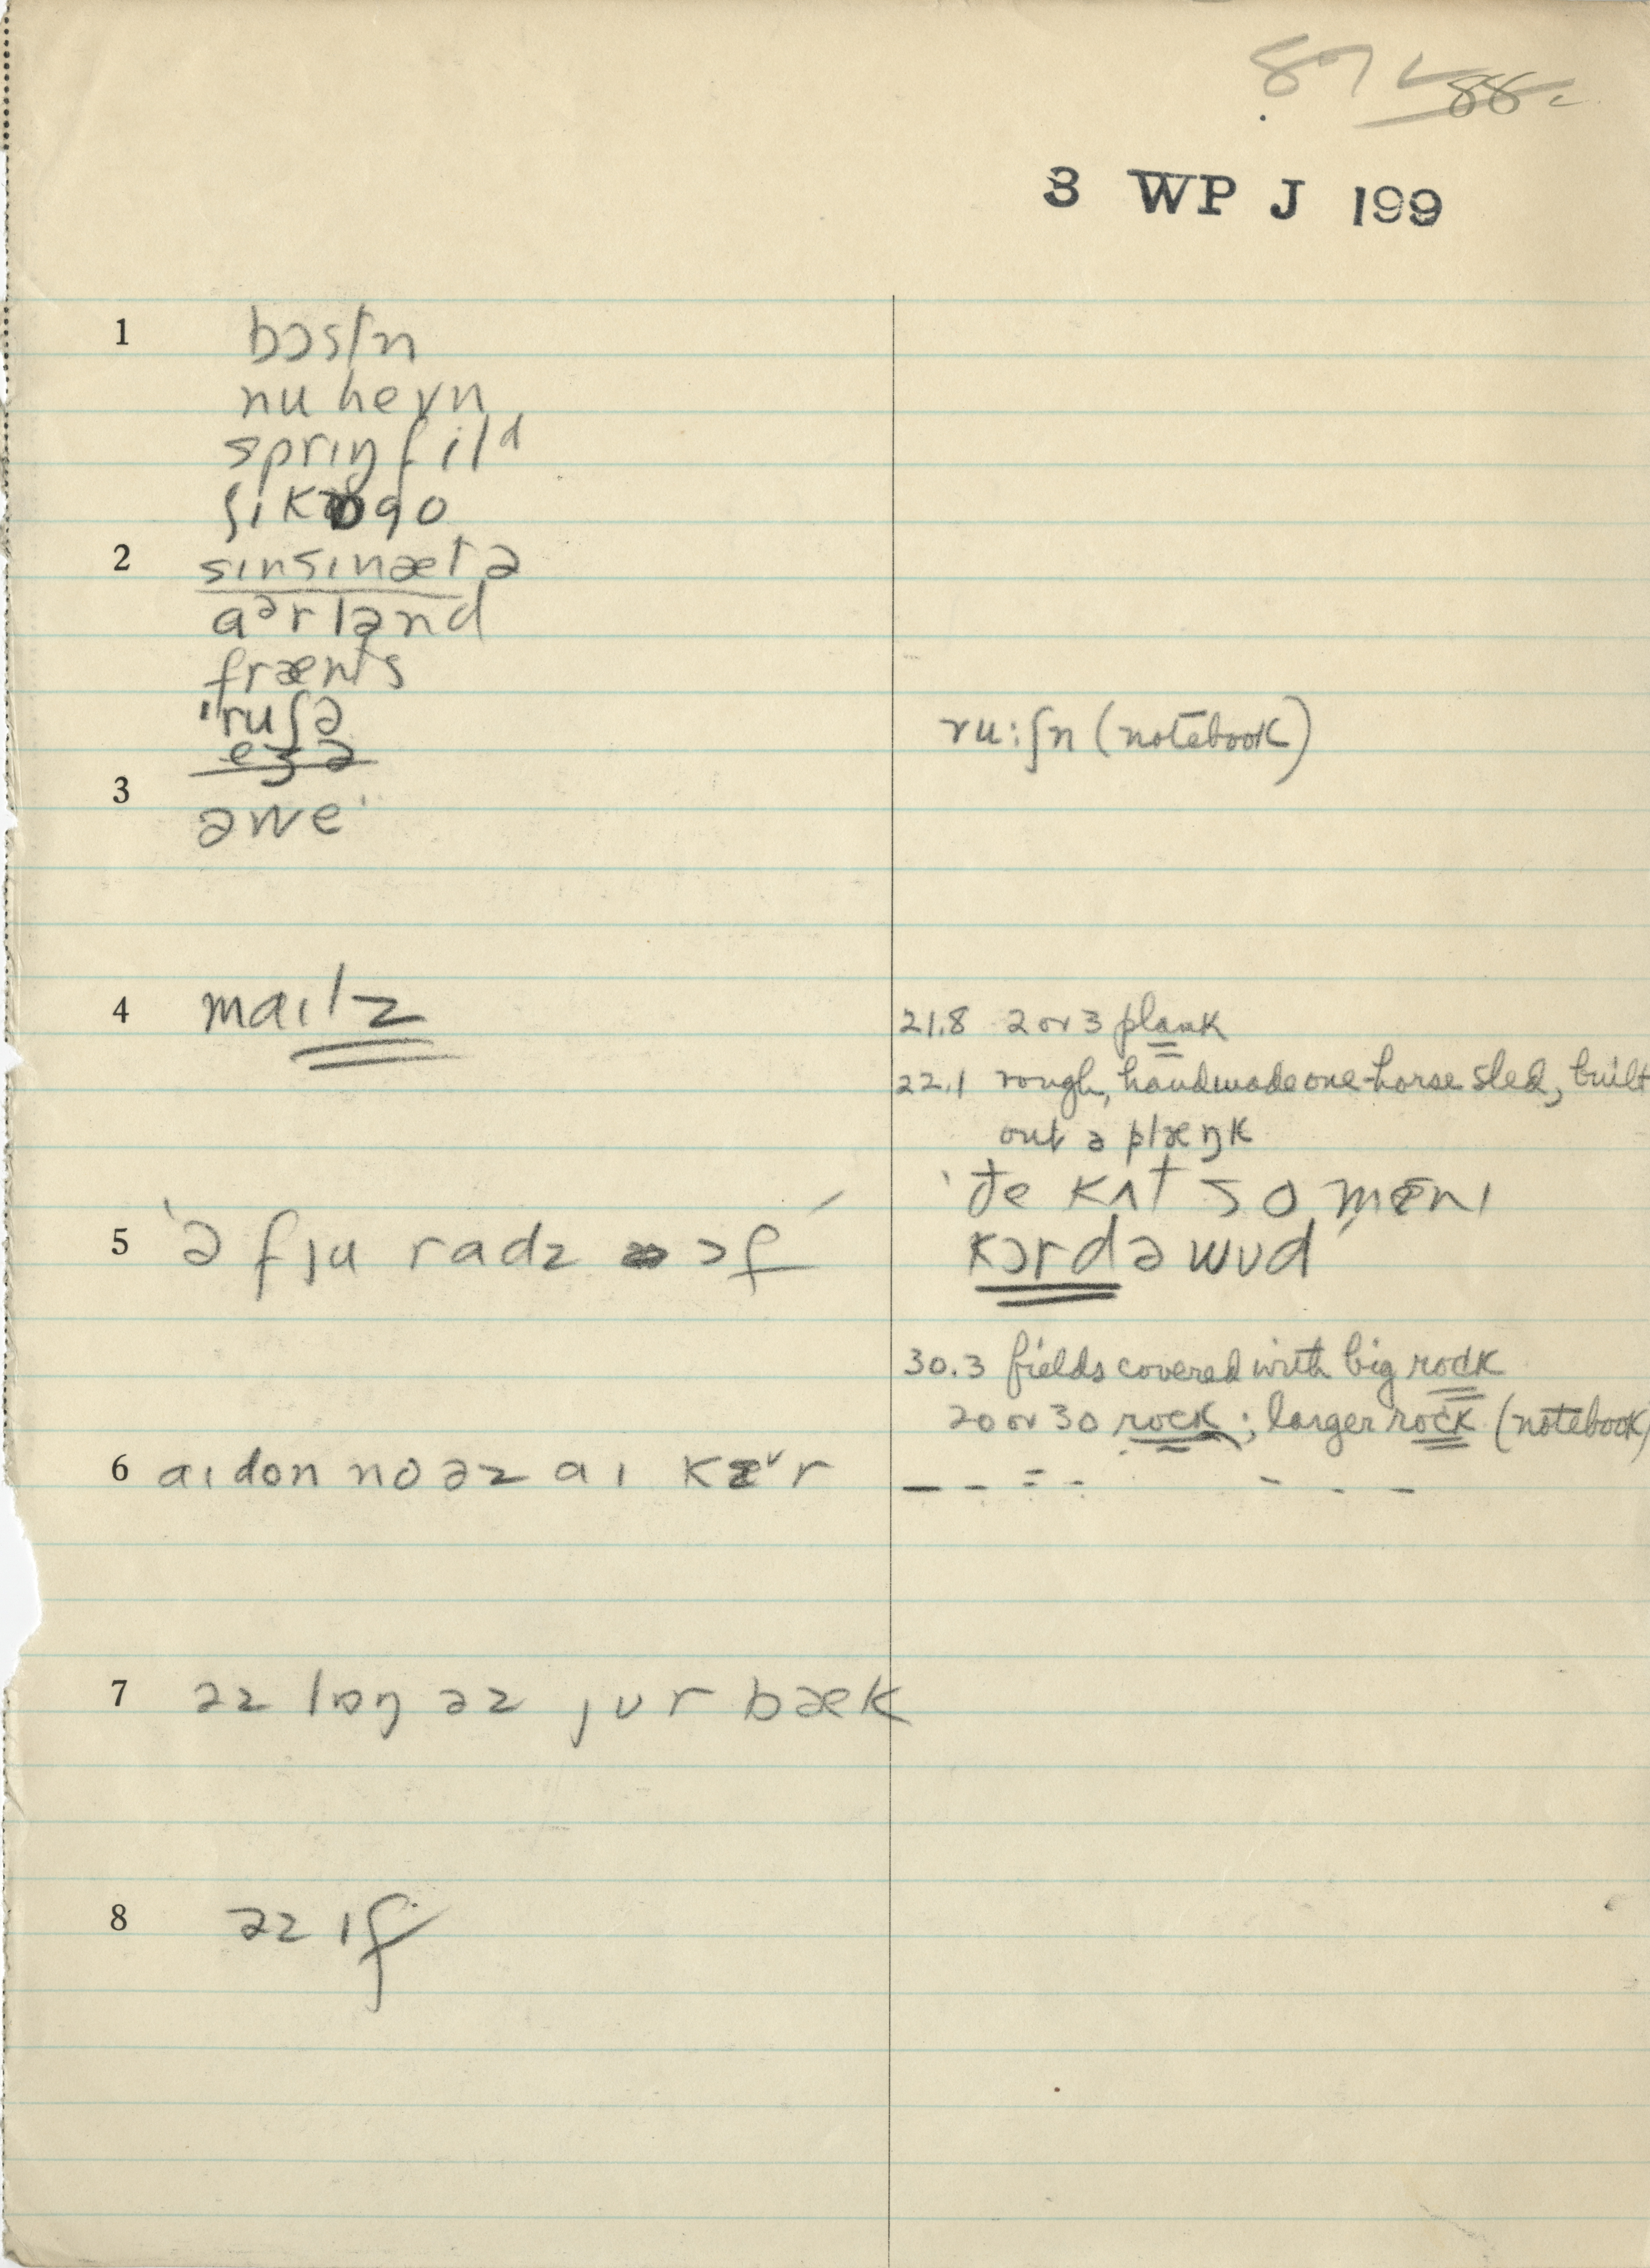 87 88
3 WP J 199
1 bɔstn
nu hevn
sprɪŋfild
ʃɪkɒgo
2 sɪnsɪnætə
aᵊrlənd
frænts
'ruʃə ru:ʃn (notebook)
eʒə
3 əwe'
4 maɪlz 21.8 2 or 3 plank
22.1 rough, handmade one-horse sled, built
out ə plæŋk
'ðe kʌt so mɛnɪ
5 'ə fju radz ɔf kɔrdə wʊd
30.3 fields covered with big rock
20 or 30 rock; larger rock (notebook)
6 aɪ don no əz aɪ kɛr
7 əz lɒŋ əz jʊr bæk
8 əz ɪf